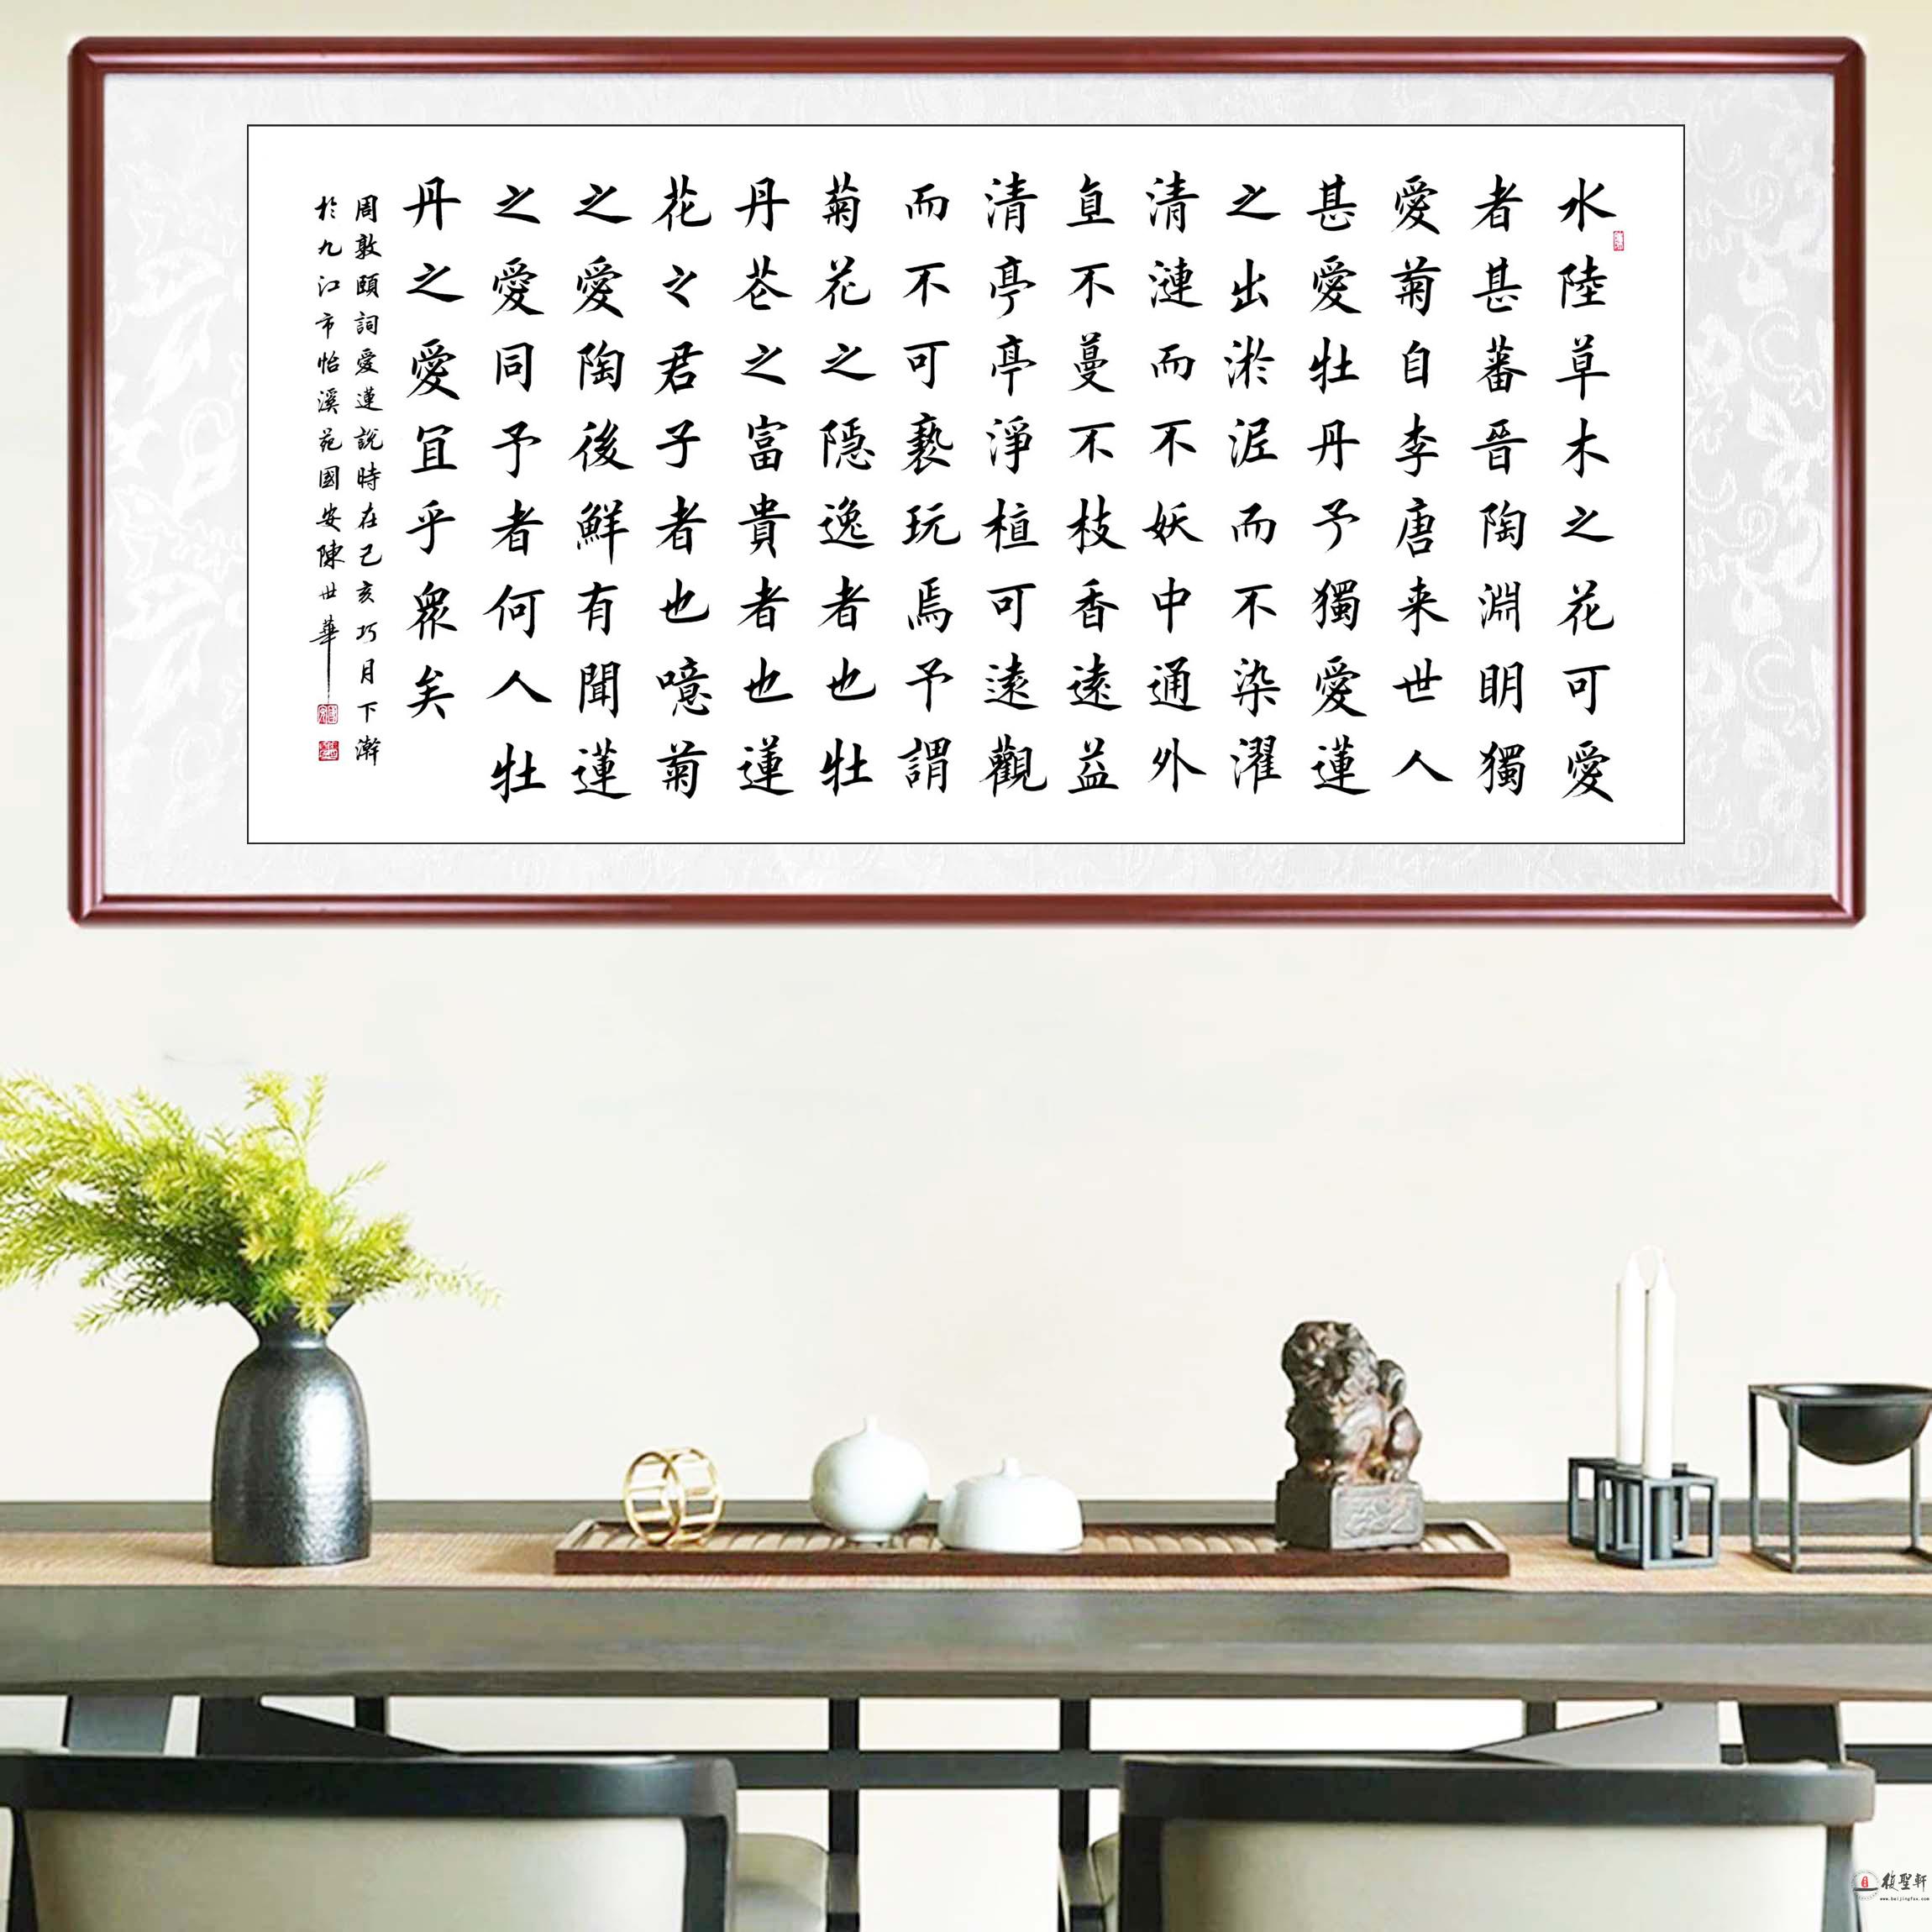 水陸草木之花可愛
者甚蕃晉陶淵明獨
愛菊自李唐来世人
甚愛牡丹予獨愛蓮
之出淤泥而不染濯
清漣而不妖中通外
直不蔓不枝香遠益
清亭亭淨植可遠觀
而不可褻玩焉予謂
菊花之隱逸者也牡
丹花之富貴者也蓮
花之君子者也噫菊
之愛陶後鮮有聞蓮
之愛同予者何人牡
丹之愛宜乎眾矣
周敦頤詞愛蓮說時在己亥巧月下澣
於九江市怡溪苑國安陳世華
復聖軒
www.beijingfsx.com